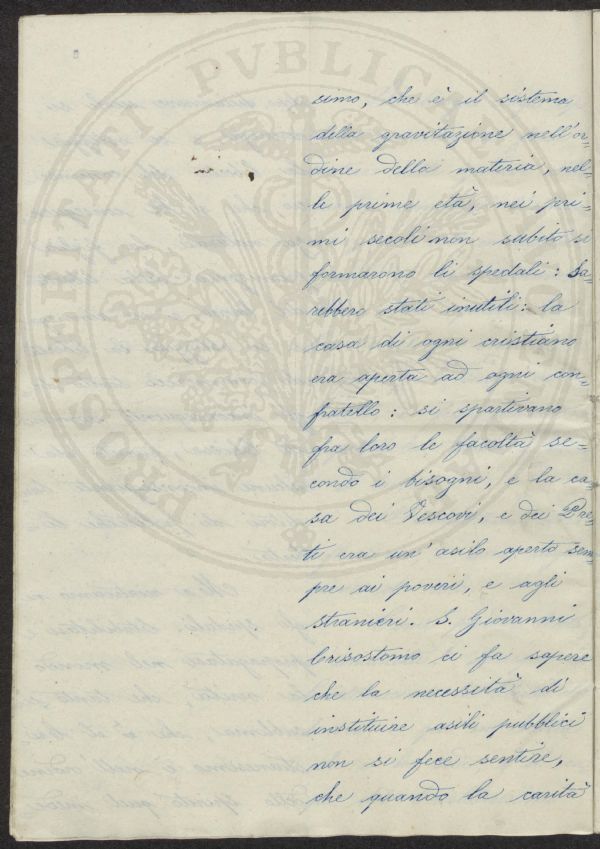 simo, che è il sistema
della gravitazione nell'or-
dine della materia, nel-
le prime età, nei pri-
mi secoli non subito si
formarono li spedali: Sa-
rebbero stati inutili: la
casa di ogni cristiano
era aperta ad ogni con-
fratello: si spartivano
fra loro le facoltà se-
condo i bisogni, e la ca-
sa dei Vescovi, e dei Pre-
ti era un' asilo aperto sem-
pre ai poveri, e agli
stranieri. S. Giovanni
Crisostomo ci fa sapere
che la necessità di
instituire asili pubblici
non si fece sentire,
che quando la carità